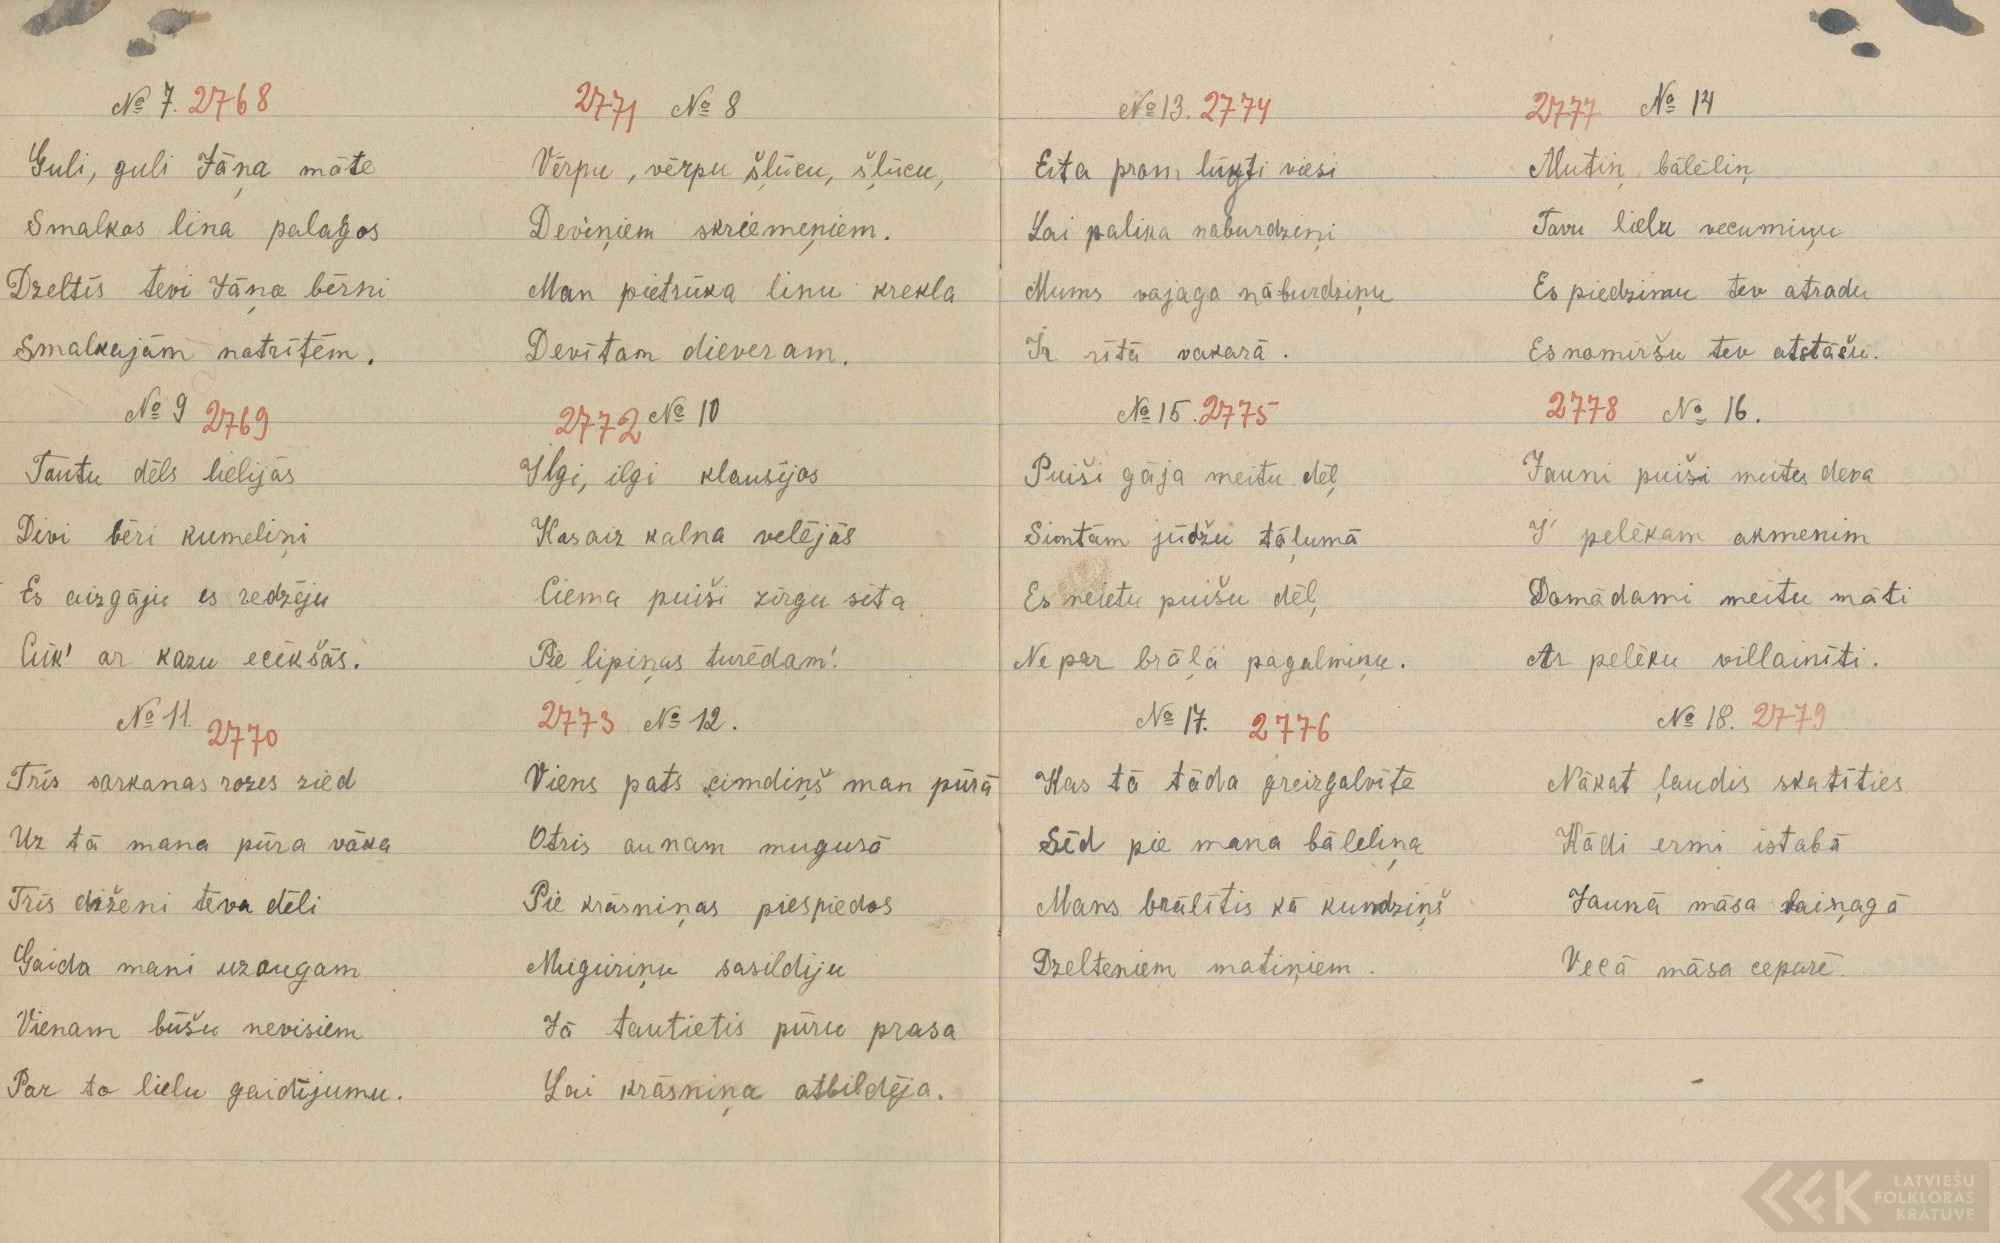 № 7. 2768
Guli, guli Jāņa māte
Smalkos lina palagos
Dzeltīs tevi Jāņa bērni
Smalkajām natrītēm.
№ 9 2769
Tautu dēls lielījās
Divi bēri kumeliņi
Es aizgāju es redzēju
Cūk' ar kazu ecēkšās.
№ 11. 2770
Trīs sarkanas rozes zied
Uz tā mana pūra vāka
Trīs diženi tēva dēli
Gaida mani uzaugam
Vienam būšu nevisiem
Par to lielu gaidījumu.
2771 № 8
Vērpu, vērpu šļūcu, šļūcu,
Deviņiem skriemeņiem.
Man pietrūka linu krekla
Devītam dieveram.
2772 № 10
Ilgi, ilgi klausījos
Kas aiz kalna velējās
Ciema puiši zirgu sita
Pie lipiņas turēdam'.
2773 № 12.
Viens pats cimdiņš man pūrā
Otris aunam mugurā
Pie krāsniņas piespiedos
Muguriņu sasildīju
Jā tautietis pūru prasa
Lai krāsniņa atbildēja.
№ 13. 2774
Eita prom lūgti viesi
Lai palika naburdziņi
Mums vajaga nāburdziņu
Ir rītā vakarā.
№ 15. 2775
Puiši gāja meitu dēļ
Simtām jūdžu tāļumā
Es neietu puišu dēļ
Ne par brāļā pagalmiņu.
№ 17. 2776
Kas tā tāda greizgalvīte
Sēd pie mana bāleliņa
Mans brālītis kā kundziņš
Dzelteniem matiņiem.
2777 № 14
Mutiņ, bālēliņ
Tavu lielu vecumiņu
Es piedzimu tev atradu
Es nomiršu tev atstāšu.
2778 № 16.
Jauni puiši meites deva
I' pelēkam akmenim
Domādami meitu māti
Ar pelēku villainīti.
№ 18. 2779
Nākat ļaudis skatīties
Kādi ermi istabā
Jaunā māsa vaiņagā
Vecā māsa cepurē.
LATVIEŠU
FOLKLORAS
KRĀTUVE